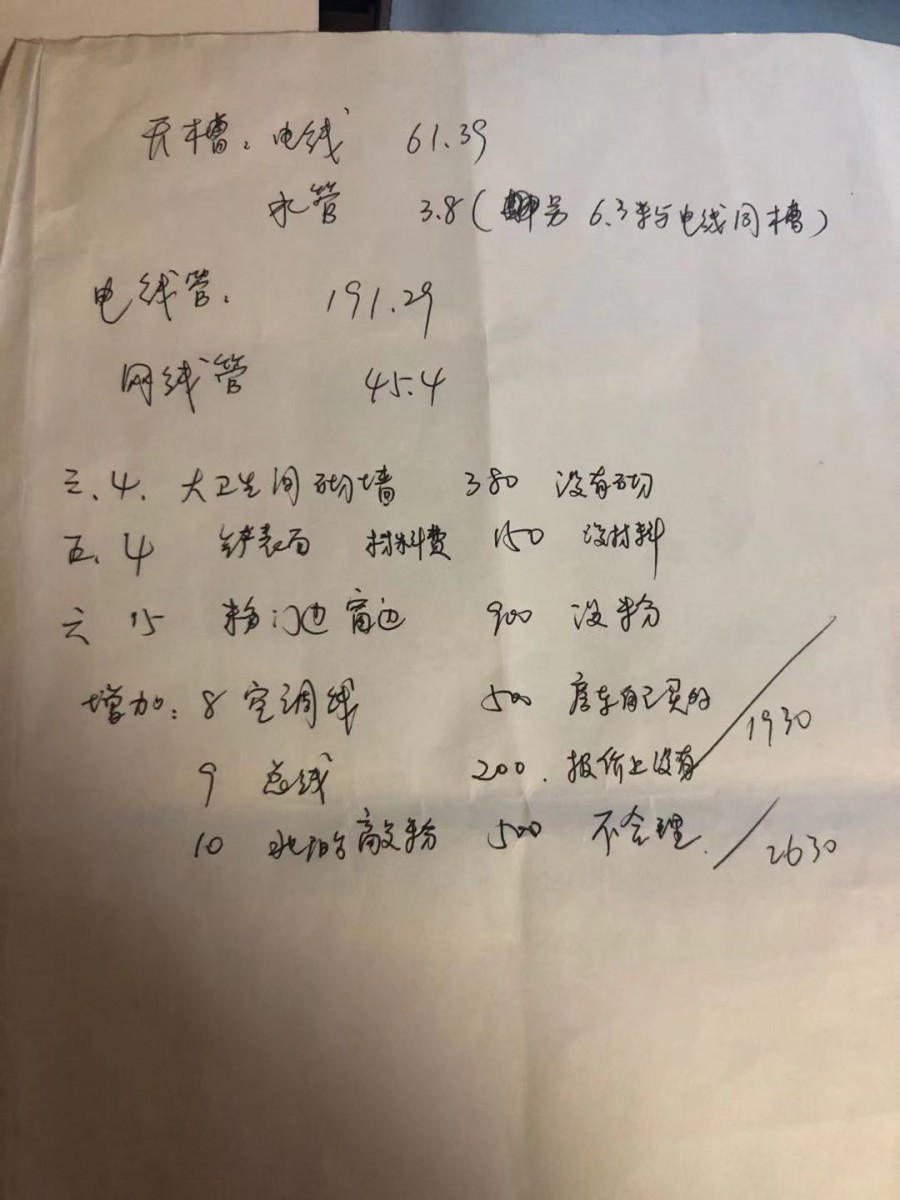 开槽：电线 61.39
水管 3.8（另 6.3米与电线同槽）
电线管： 191.29
网线管 45.4
三.4. 大卫生间砌墙 380 没有砌
五.4 铲表面 材料费 150 没材料
六 15 粉门边窗边 900 没粉
增加：8 空调线 500 房东自己买的
9 总线 200. 报价上没有 1930
10 敲粉 500 不合理. 2630